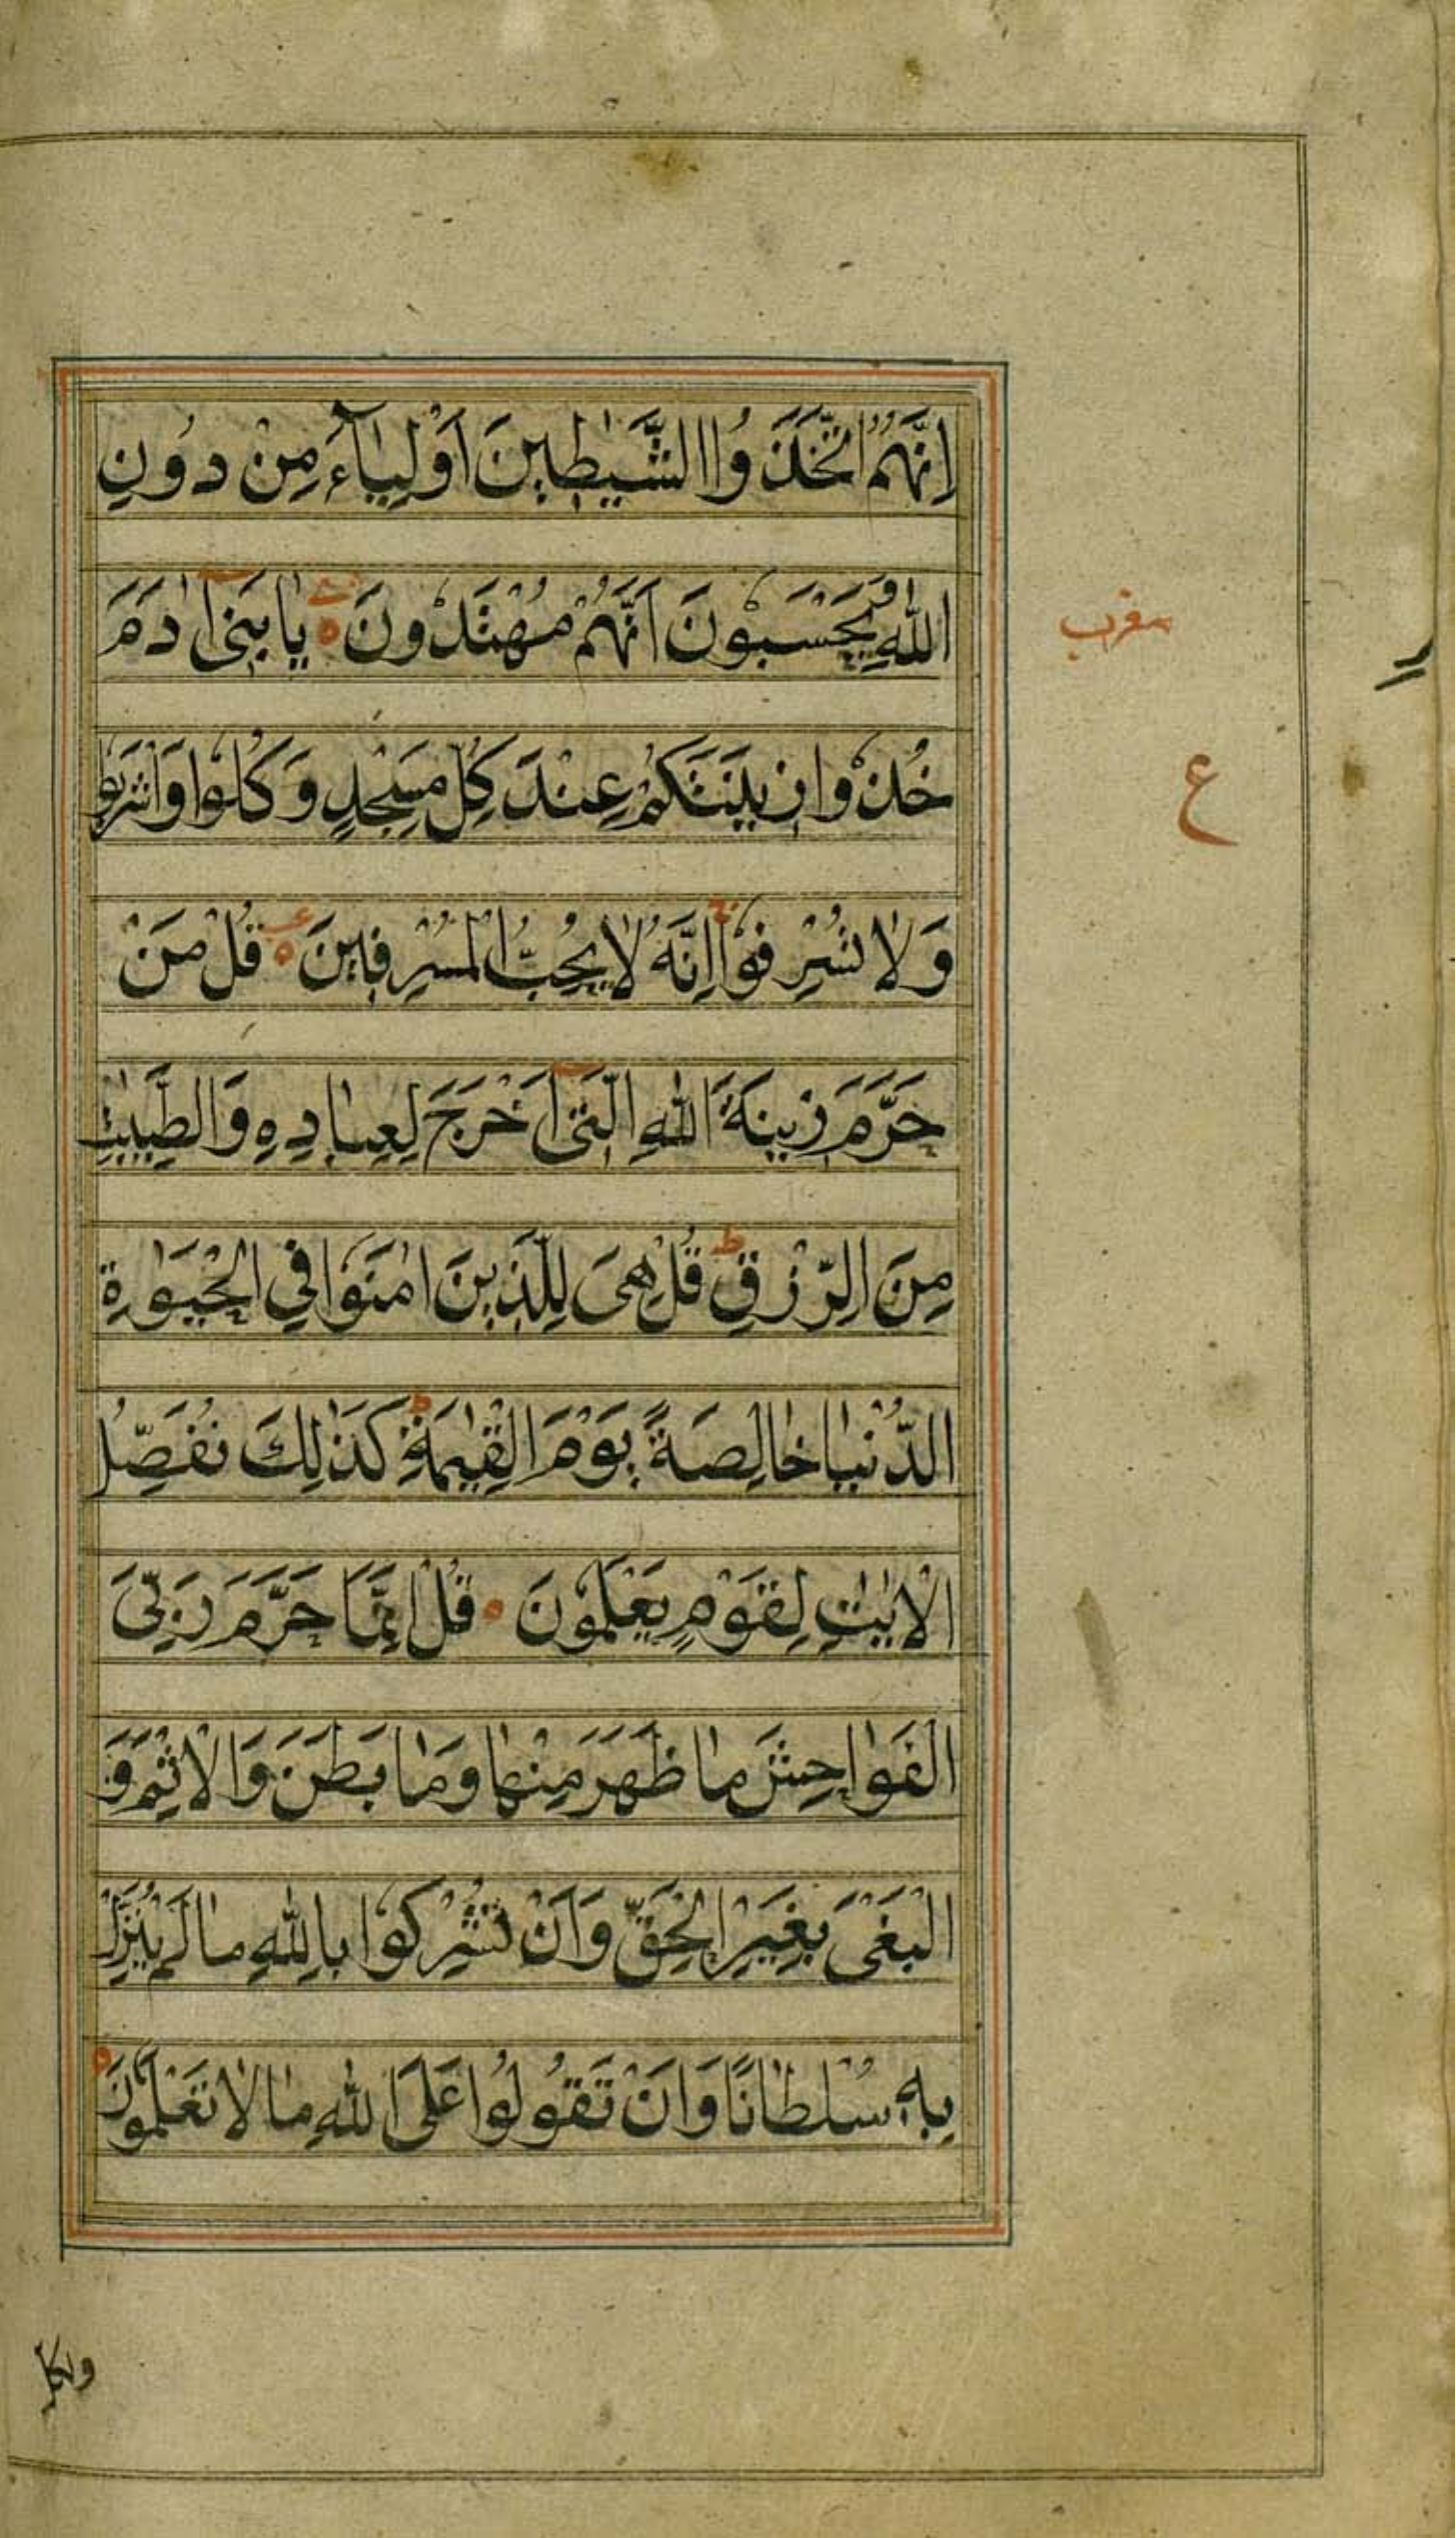 اِنَّهُمُ اتَّخَذُوا الشَّيٰطِينَ اَوْلِيَاۤءَ مِنْ دُونِ
اللّٰهِ وَيَحْسَبُونَ اَنَّهُمْ مُهْتَدُونَ ه يٰابَنِىٓ اٰدَمَ
خُذُوا زِينَتَكُمْ عِنْدَ كُلِّ مَسْجِدٍ وَكُلُوا وَاشْرَبُوا
وَلَا تُسْرِفُوٓا اِنَّهُ لَا يُحِبُّ الْمُسْرِفِينَ ه قُلْ مَنْ
حَرَّمَ زِينَةَ اللّٰهِ الَّتِىٓ اَخْرَجَ لِعِبَادِهِ وَالطَّيِّبٰتِ
مِنَ الرِّزْقِ ط قُلْ هِىَ لِلَّذِينَ اٰمَنُوا فِي الْحَيٰوةِ
الدُّنْيَا خَالِصَةً يَوْمَ الْقِيٰمَةِ ط كَذٰلِكَ نُفَصِّلُ
الْاٰيٰتِ لِقَوْمٍ يَعْلَمُونَ ه قُلْ اِنَّمَا حَرَّمَ رَبِّىَ
الْفَوَاحِشَ مَا ظَهَرَ مِنْهَا وَمَا بَطَنَ وَالْاِثْمَ وَ
الْبَغْىَ بِغَيْرِ الْحَقِّ وَاَنْ تُشْرِكُوا بِاللّٰهِ مَا لَمْ يُنَزِّلْ
بِهٖ سُلْطَانًا وَاَنْ تَقُولُوا عَلَى اللّٰهِ مَا لَا تَعْلَمُونَ ه
ع
ولكل